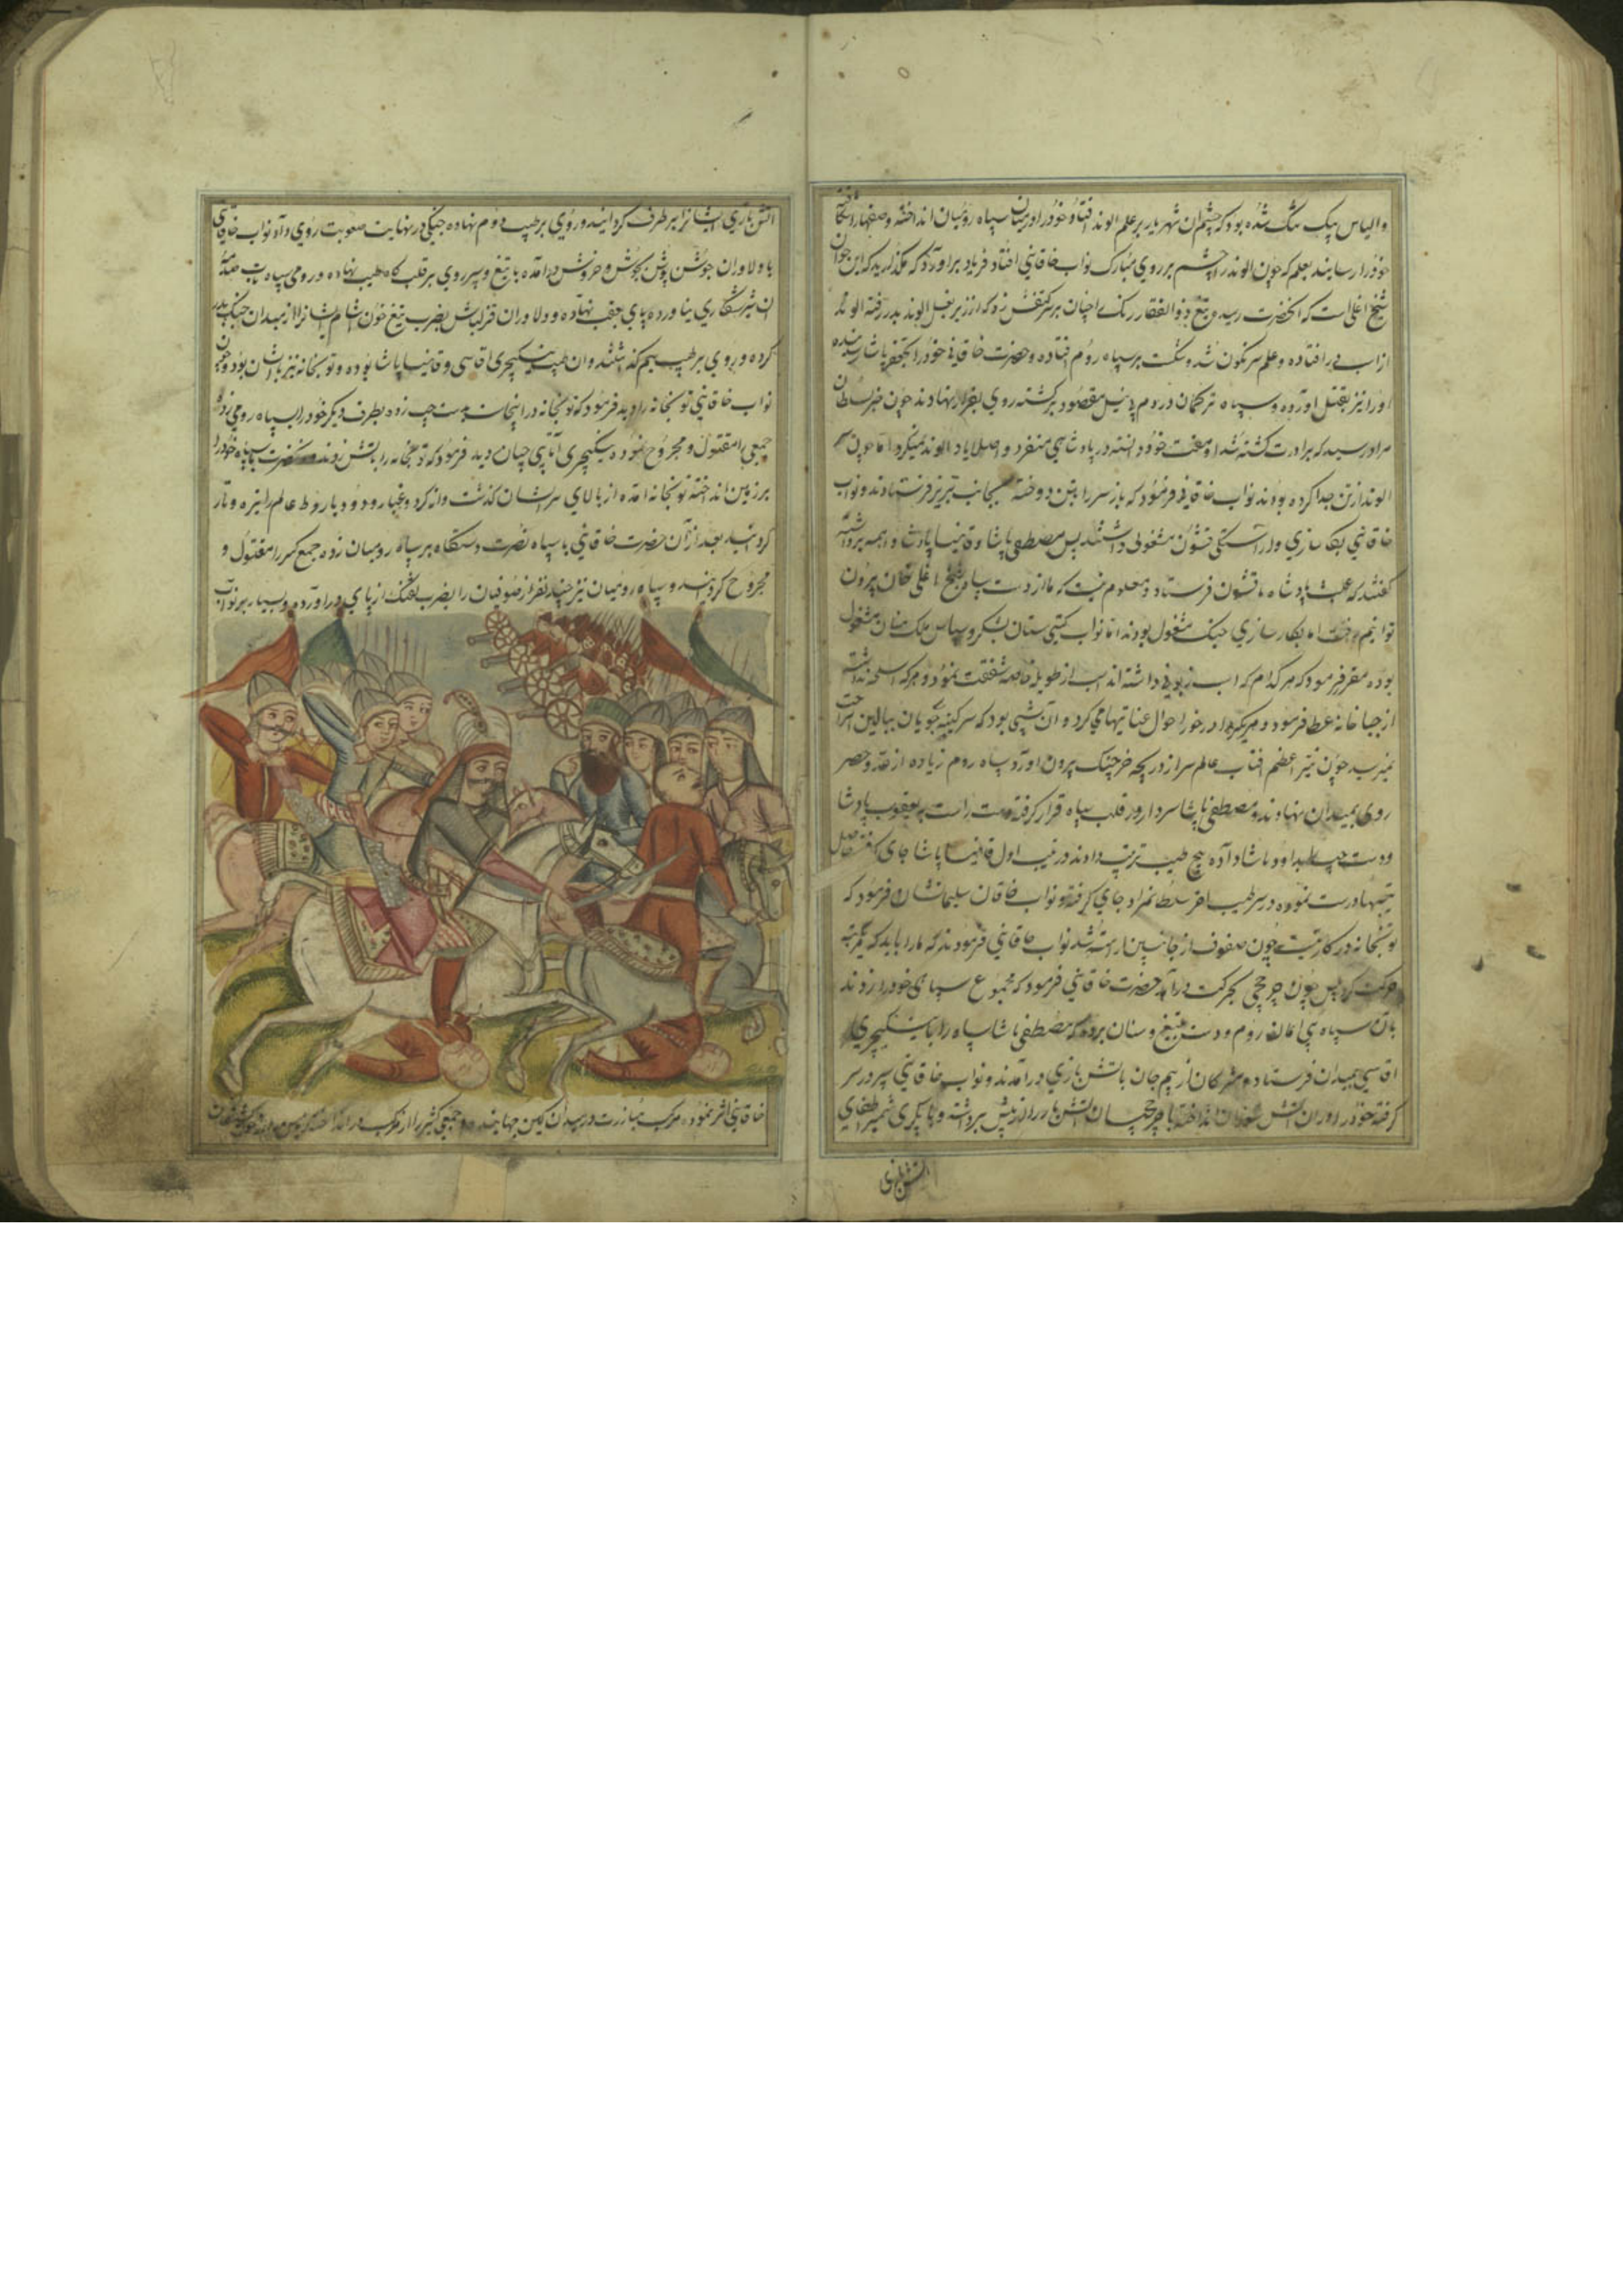 والیاس بیک شک شده بود که چشم آن شهریار بر علم الوند افتاد و خود را در میان سپاه رومیان انداخته و صفها را شکافته
خود را رسانید بعلم که چون الوند را چشم بر روی مبارک نواب خاقانی افتاد فریاد برآورد که مگذارید که این جوان
شیخ اغلی است که آنحضرت رسید و تیغ ذوالفقار رنگ را چنان بر کتفش زد که از زیر بغل الوند بدر رفته الوند
از اسب درافتاده و علم سرنگون شد و شکست بر سپاه روم افتاده و حضرت خاقانی خود را بجعفر پاشا رسانیده
او را نیز بقتل آورده و سپاه ترکمان و روم بی نیل مقصود برگشته روی بفرار نهادند چون خبر بسلطان
مراد رسید که برادرت کشته شد او مغت خود دانسته در پادشاهی منفرد و اصلا یاد الوند نمیکرد اما چون سر
الوند از تن جدا کرده بودند نواب خاقانی فرمود که باز سر را بتن دوخته بجانب تبریز فرستادند و نواب
خاقانی بکارسازی و آراستگی قشون مشغولی داشتند پس مصطفی پاشا و قانیسا پادشاه همه برداشته
گفتند که عبث پادشاه ما قشون فرستاد و معلوم نیست که ما از دست سپاه شیخ اغلی جان بیرون
توانیم برد اما بکارسازی جنگ مشغول بودند اما نواب گیتی ستان بشکر و سپاس ملک منان مشغول
بوده مقرر فرمود که هر کدام که اسب زبونی داشته اند اسب از طویله خاصه شفقت نمود و هر که اسلحه نداشته
از جبا خانه عطا فرمود و هر یک را در خور احوال عنایتها می کرد و آن شبی بود که سر کینه جویان ببالین استراحت
نمیرسید چون نیر اعظم آفتاب عالم سر از دریچه خرچنگ بیرون آورد سپاه روم زیاده از عد و حصر
روی بمیدان نهادند و مصطفی پاشا سردار در قلب سپاه قرار گرفته دست راست بیعقوب پادشا
و دست چپ بداود پاشا داده پنج طیب ترتیب دادند در طیب اول قانیسا پاشا جای گرفت
تیپها درست نموده در سر طیب آخر سلطانمراد جای گرفته و نواب خاقان سلیمانشان فرمود که
توپخانه در کار نیست چون صفوف از جانبین آراسته شد نواب خاقانی فرمودند که ما را باید که یکمرتبه
حرکت کرد پس چون چرخچی بحرکت درآید حضرت خاقانی فرمود که مجموع سپاه خود را زدند
بآن سپاه بی امان روم و دست بتیغ و سنان بردند که مصطفی پاشا سپاه را با ینکیچری
آقاسی بمیدان فرستاده مشرکان از بیم جان بآتش بازی درآمدند و نواب خاقانی سپر در سر
گرفته خود را در آن آتش سوزان انداخته با چرخچیان آتش بار را از پیش برداشته و
آتش بازی
آتش بازی ایشانرا برطرف گردانیده و روی بر طیب دوم نهاده جنگی در نهایت صعوبت روی داد و نواب خاقانی
با دلاوران جوشن پوش بجوش و خروش درآمده با تیغ و سپر روی بر قلب کاه طیب نهاده و رومی سپاه تاب صدمه
آن شیر شکاری نیاورده پای بعقب نهاده و دلاوران قزلباش بضرب تیغ خون آشام ایشانرا از میدان جنگ بدر
کرده و روی بر طیب سیم گذاشتند و آن طیب ینکیچری آقاسی و قانیسا پاشا بوده و توپخانه نیز با ایشان بود و چون
نواب خاقانی توپخانه را دید فرمود که توپخانه در اینجاست بدست چپ زده بطرف دیگر خود را بسپاه رومی زده
جمعی را مقتول و مجروح نموده ینکیچری آقاسی چنان دید فرمود که توپخانه را بآتش زدند حضرت با سپاه خود را
بر زمین انداخته توپخانه آمده از بالای سر ایشان گذشت و از گرد و غبار و دود باروط عالم را تیره و تار
گردانید بعد از آن حضرت خاقانی با سپاه نصرت دستگاه بر سپاه رومیان زده جمع کثیر را مقتول و
مجروح گردانیدند و سپاه رومیان نیز چند نفر از صوفیان را بضرب تفنگ از پای درآورده و بسیار بر نواب
خاقانی اثر نموده مرکب مبارزت در میدان کین جهانیده و جمعی کثیر را از مرکب درانداخته